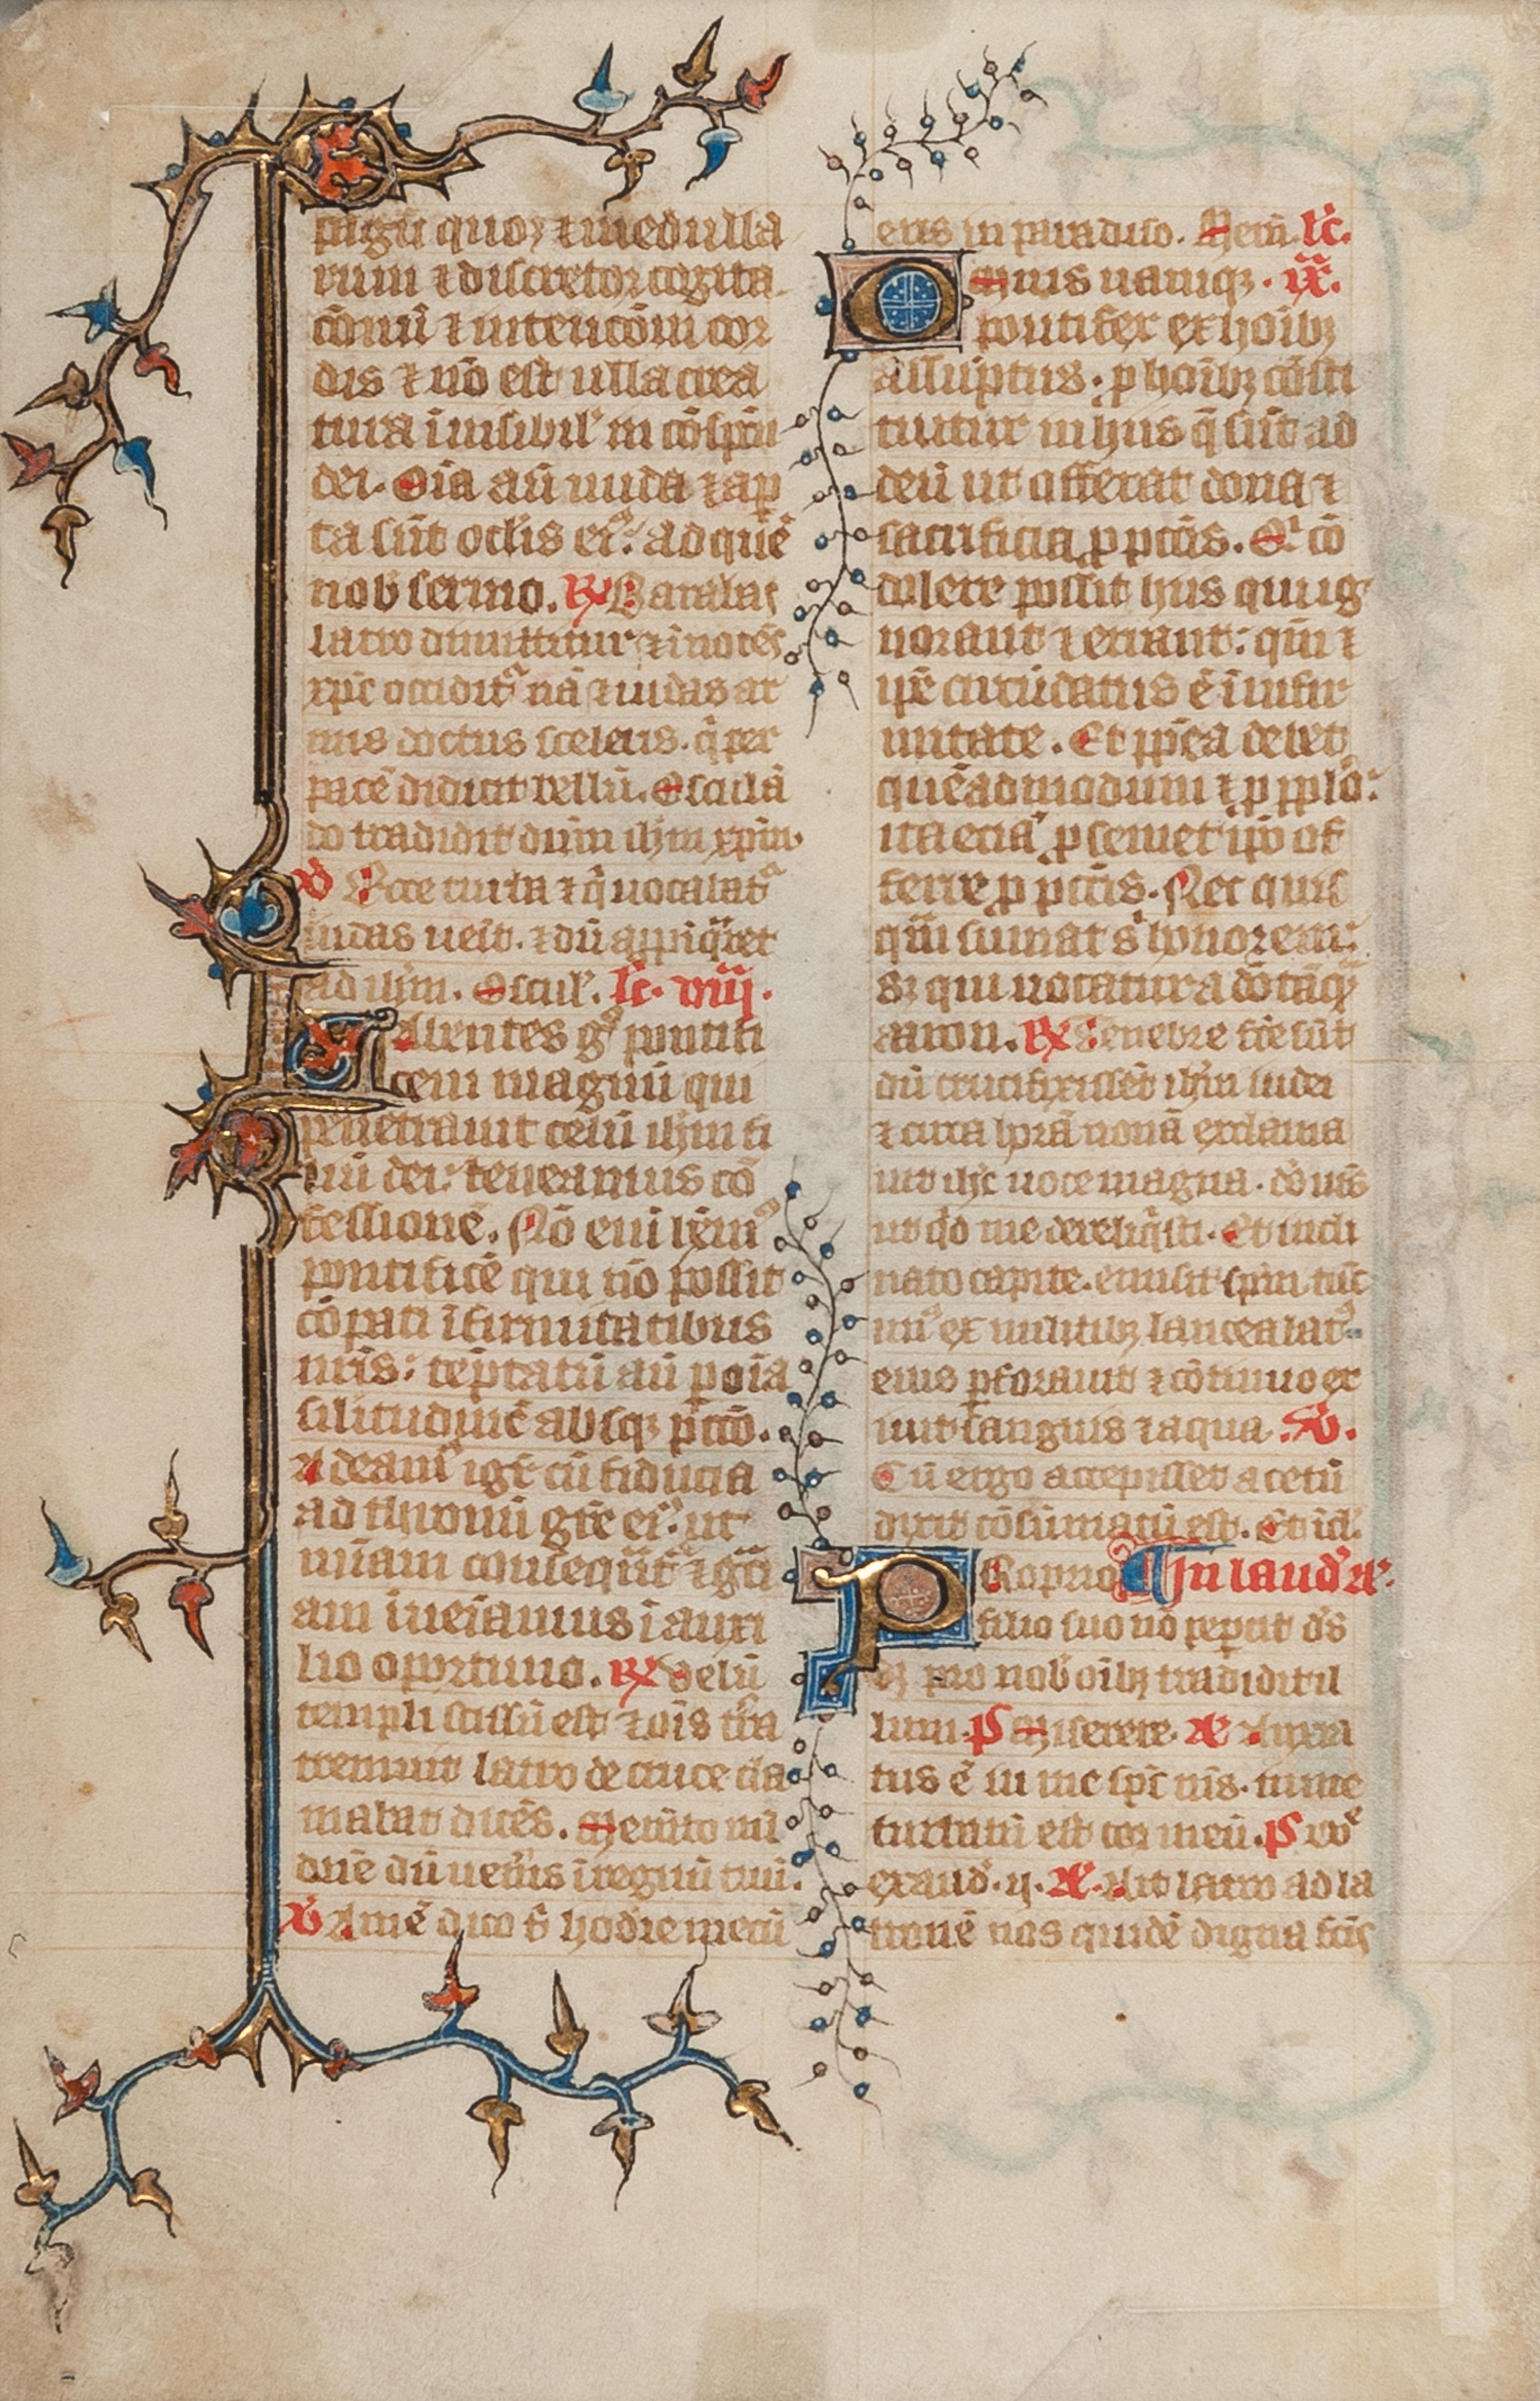 pagū quoꝫ ⁊ medulla
rum ⁊ discretor cogita
cōnū ⁊ intencōm cor
dis ⁊ nō est ulla crea
tura īuisibil' in cōspcū
dei. Oīa aū nuda ⁊ ap
ta sūt oclis eiꝰ: ad quē
nob sermo. R̷ Barabas
latro dimittitur ⁊ īnocēs
xp̄c occidit᷑ nā ⁊ iudas ar
mis doctus sceleris. q̄ per
pacē didicit bellū. Oscula
do tradidit dūm ihm xpm.
V̷ Ecce turba ⁊ q̄ uocabat᷑
iudas ueīt. ⁊ dū appīq̄ret
ad ihm. Oscul'. lc̄. viij.
Abentes gͦ pontifi
cem magnū qui
penetrauit celū ihm fi
liū dei: teneamus cō
fessionē. Nō enī hēmꝰ
pontificē qui nō possit
cōpati īfirmitatibus
nr̄is: tēptatū aū p oīa
silitudinē absqꝫ pccō.
Adeamꝰ igr̄ cū fiducia
ad thronū gr̄e eiꝰ: ut
mīam conseqm̄ ⁊ gr̄ci
am īueiamus ī auxi
lio oportuno. R̷ Velū
templi scissū est ⁊ oīs tr̄a
tremuit latro de cruce cla
mabat dicēs. Memēto mī
dnē dū uen̄is ī regnū tuū.
V̷ Amē dico t̄ hodie mecū
eris in paradiso. Mem̄. lc̄.
Omnis namqꝫ. ix.
pontifex ex hoībꝫ
assūptus: p hoībꝫ cōsti
tuitur in hiis q̄ sūt ad
deū ut offerat dona ⁊
sacrificia p pccīs. Qͥ cō
dolere possit hiis qui ig
norant ⁊ errant: qm̄ ⁊
ipē circūdatus ē īfir
mitate. Et pp̄ea debet
quēadmodum ⁊ p pplō:
ita eciā p semet ipō of
ferre p pccīs. Nec quis
qm̄ sumat sͥ honorem:
sꝫ qui uocatur a dō tāqꝫ
aaron. R̷ Tenebre fc̄e sūt
dū crucifixissēt ihm iudei
⁊ circa horā nonā exclama
uit ihc uoce magna. dō ms̄
ut qͥd me dereliqͥsti. Et incli
nato capite. emisit spm tūc
unꝰ ex militibꝫ lancea latꝰ
eius pforauit ⁊ cōtinuo ex
iuit sanguis ⁊ aqua. V̷.
Cū ergo accepisset acetū
dixit cōsūmatū est. Et icl'.
Proprio In laud᷑ a'.
filio suo nō pepcit ds̄
sꝫ pro nob oībꝫ tradidit il
lum. ps Miserere. a' Anxia
tus ē in me spc̄ ms̄. in me
turbatū est cor meū. ps dnē
exaud'. ij. a'. Ait latro ad la
tronē nos quidē digna fcīs